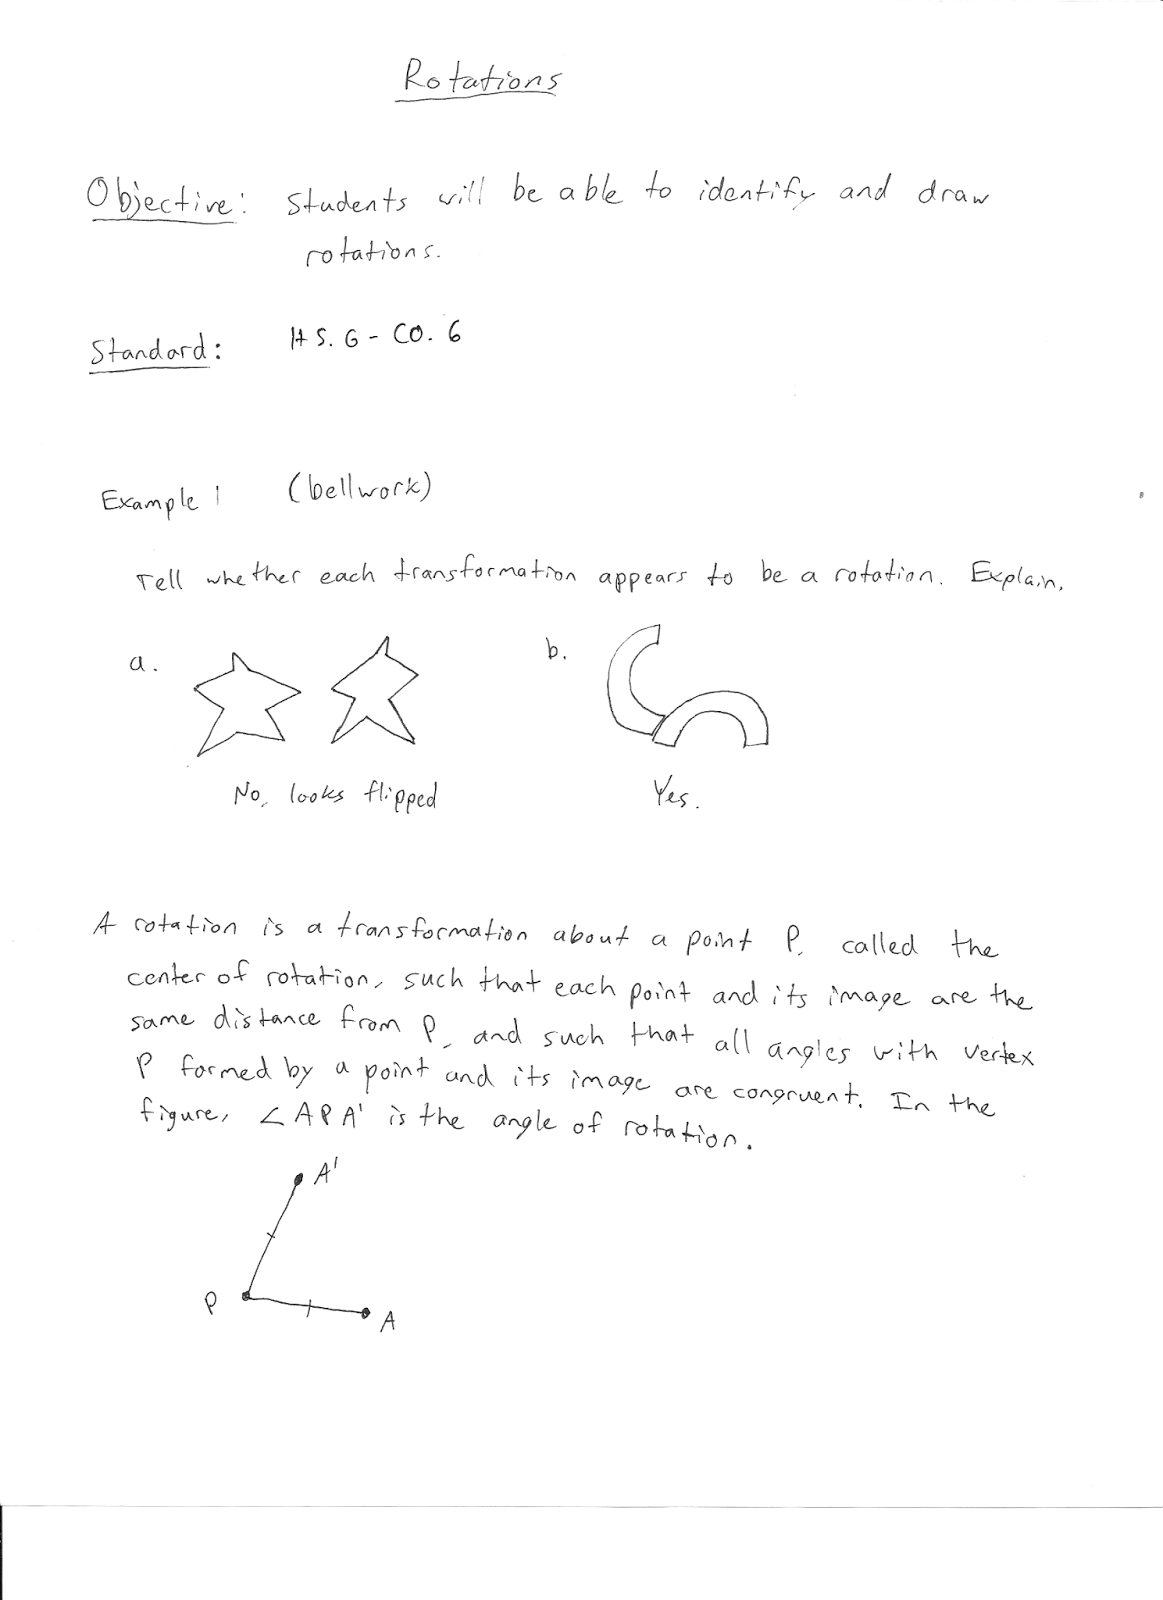 Rotations
Objective: Students will be able to identify and draw
rotations.
Standard: HS.G-CO.6
Example 1 (bellwork)
Tell whether each transformation appears to be a rotation. Explain.
a. b.
No, looks flipped Yes.
A rotation is a transformation about a point P, called the
center of rotation, such that each point and its image are the
same distance from P, and such that all angles with vertex
P formed by a point and its image are congruent. In the
figure, ∠APA' is the angle of rotation.
A'
P
A